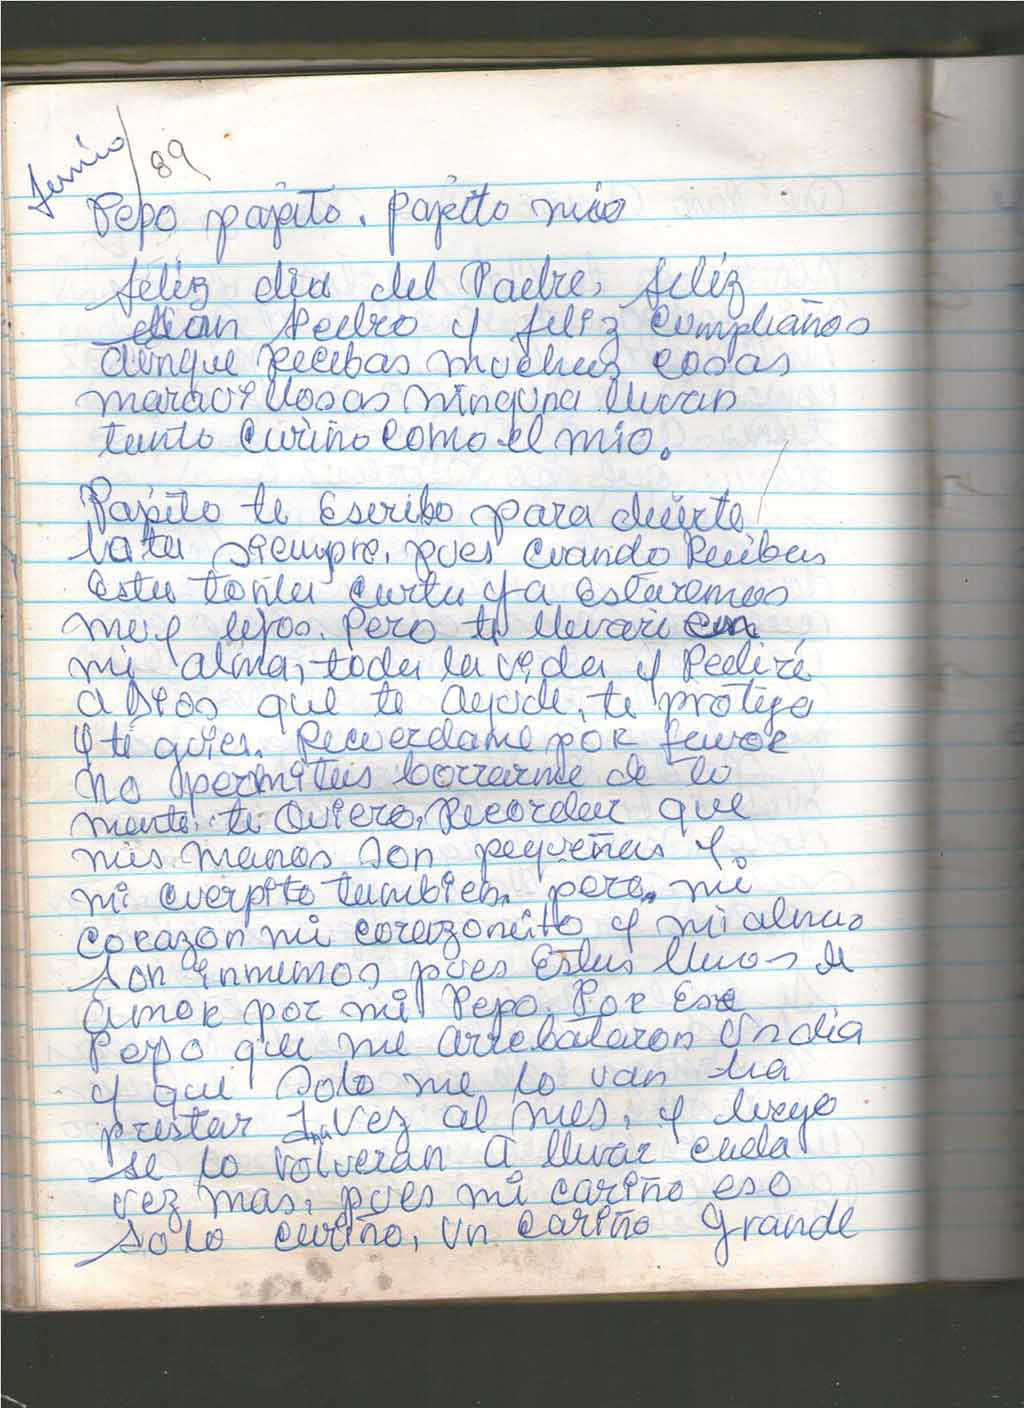 Junio/89
Pepo papito. papito mio
feliz dia del Padre, feliz
San Pedro y feliz cumpleaños
aunque recibas muchas cosas
maravillosas ninguna llevan
tanto cariño como el mio.
Papito te Escribo para decirte
hasta siempre, pues cuando Recibas
esta tonta carta ya estaremos
muy lejos. Pero te llevare en
mi alma, toda la vida y Pediré
a Dios que te ayude, te proteja
y te guies. Recuerdame por favor
no permitas borrarme de tu
mente, te Quiero, Recordar que
mis manos son pequeñas y
mi cuerpito tambien, pero, mi
corazon mi corazoncito y mi alma,
son inmensos pues Estas llenos de
amor por mi Pepo. Por Ese
Pepo que me arrebataron Un dia
y que solo me lo van ha
prestar 1 vez al mes, y luego
se lo volveran a llevar cada
vez mas, pues mi cariño eso
solo cariño, un cariño grande